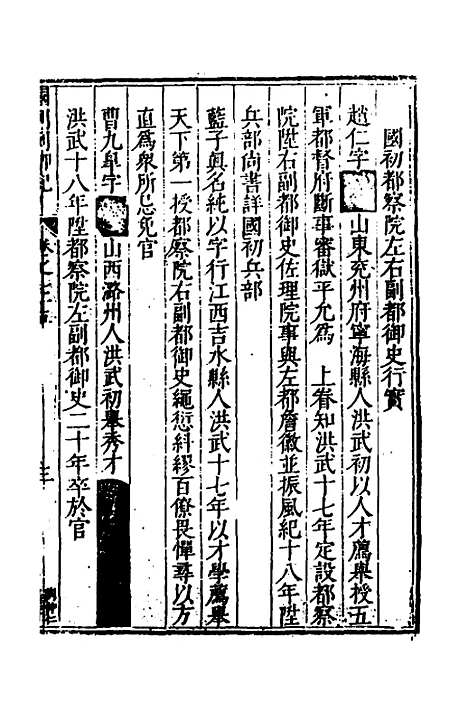 國初都察院左右副都御史行實
趙仁字山東兖州府寧海縣人洪武初以人才薦舉授五
軍都督府斷事審獄平允為 上眷知洪武十七年定設都察
院陞右副都御史佐理院事與左都詹徽並振風紀十八年陞
兵部尚書詳國初兵部
藍子真名純以字行江西吉水縣人洪武十七年以才學薦舉
天下第一授都察院右副都御史繩愆糾繆百僚畏憚尋以方
直為衆所忌免官
曹九皐字山西潞州人洪武初舉秀才
洪武十八年陞都察院左副都御史二十年卒於官